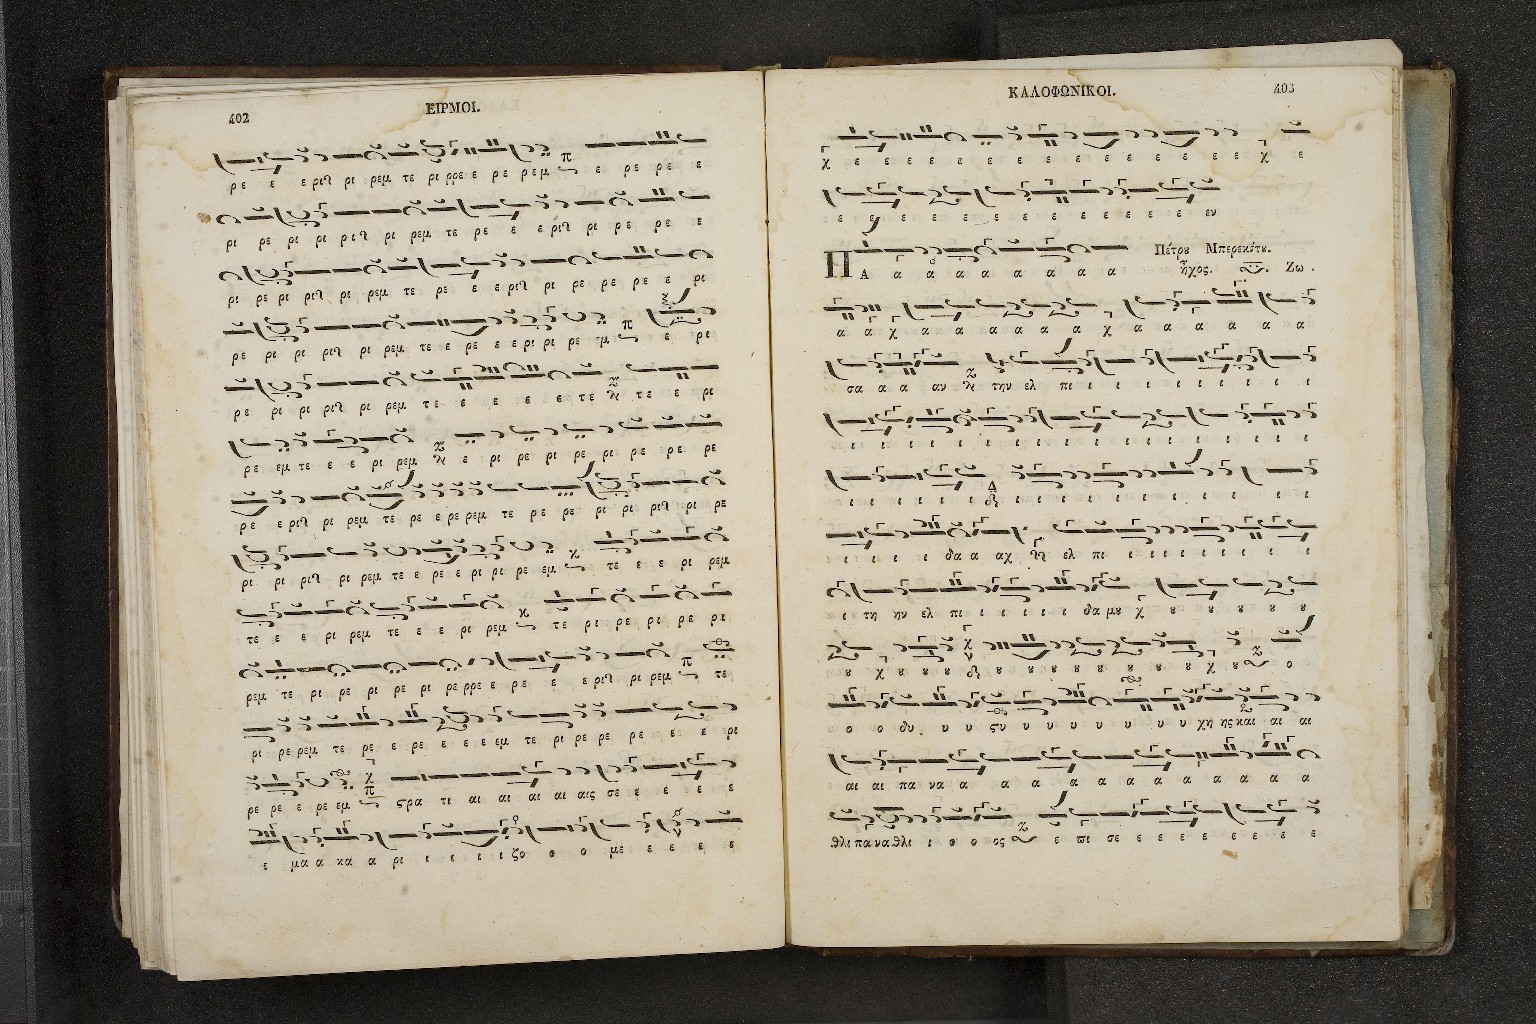 402
ΕΙΡΜΟΙ.
ρε ε ε ριϛ ρι ρεμ τε ρι ρρε ε ρε ρε μ ε ρε ρε ε
ρι ρε ρι ρι ριϛ ρι ρεμ τε ρε ε ε ριϛ ρι ρε ρε ε
ρι ρε ρι ριϛ ρι ρεμ τε ρε ε ε ριϛ ρι ρε ρε ρε ε ρι
ρε ρι ρι ριϛ ρι ρεμ τε ε ρε ε ε ρι ρι ρε εμ ε ρι
ρε ρι ρι ριϛ ρι ρεμ τε ε ε ε ε τε τε ε ρι
ρε εμ τε ε ε ρι ρεμ ε ρι ρε ρι ρε ρι ρε ρε ρε
ρε ε ριϛ ρι ρεμ τε ρε ε ρε ρεμ τε ρε ρε ρι ρι ριϛ ρι ρε
ρι ρι ριϛ ρι ρεμ τε ε ρε ε ρι ρι ρε εμ τε ε ε ρι ρεμ
τε ε ε ρι ρεμ τε ε ε ρι ρεμ κ τε ρι ρε ρι ρε ρι
ρεμ τε ρι ρε ρι ρε ρι ρε ρρε ε ρε ε ε ριϛ ρι ρεμ π τε
ρι ρε ρεμ τε ρε ε ρε ε ε ε εμ τε ρι ρε ρε ρε ε ε ρι
ρε ρε ε ρε εμ ϛρα τι αι αι αι αι αις σε ε ε ε ε
ε μα α κα α ρι ι ι ι ι ζο ο ο με ε ε ε ε
ΚΑΛΟΦΩΝΙΚΟΙ.
403
χ ε ε ε ε ε ε ε ε ε ε ε ε ε ε ε ε χ ε
ε ε ε ε ε ε ε ε ε ε ε ε ε εν
Πέτρου Μπερεκέτου.
Π Α α α α α α α α α ἦχος. Ζω .
α α χ α α α α α α α χ α α α α α α α
σα α α αν την ελ πι ι ι ι ι ι ι ι ι
ι ι ι ι ι ι ι ι ι ι ι ι ι ι ι ι
ι ι ι ι ι Δ ι ι ι ι ι ι ι ι ι ι
ι ι ι ι δα α αχ ελ πι ι ι ι ι ι ι ι ι
ι τη ην ελ πι ι ι ι ι ι δα μȣ χ ȣ ȣ ȣ ȣ ȣ ȣ
ȣ χ ȣ ȣ ȣ ȣ ȣ ȣ ȣ ȣ ȣ ȣ ȣ χ ȣ ο
ο ο δυ υ υ ϛυ υ υ υ υ υ υ υ χη ης και αι αι
αι αι πα να α α α α α α α α α α α α
θλι πα να θλι ι ο ο ος ε πι σε ε ε ε ε ε ε ε